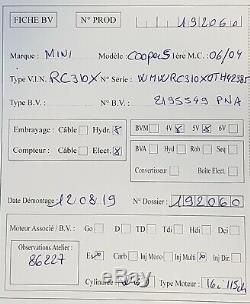 FICHE BV N° PROD 192060
Marque : MINI Modèle : Cooper S 1ère M.C. : 06/04
Type V.I.N. RC310X N° Série : WMWRC310X0TH42385
Type B.V. : N° B.V. : 2195549 PNA
Embrayage : Câble Hydr. X BVM 4V X 5V X 6V
Compteur : Câble Elect. X BVA Hyd Rob Seq
Convertisseur Boite Elect.
Date Démontage 12.08.19 N° Dossier : 192060
Moteur Associé / B.V. : Go D TD Tdi Hdi Dci
Observations Atelier :
86227
Ess X Carb Inj Mono Inj Multi X Inj Dir.
Cylindrée 1.6 Type Moteur : 16v 115ch